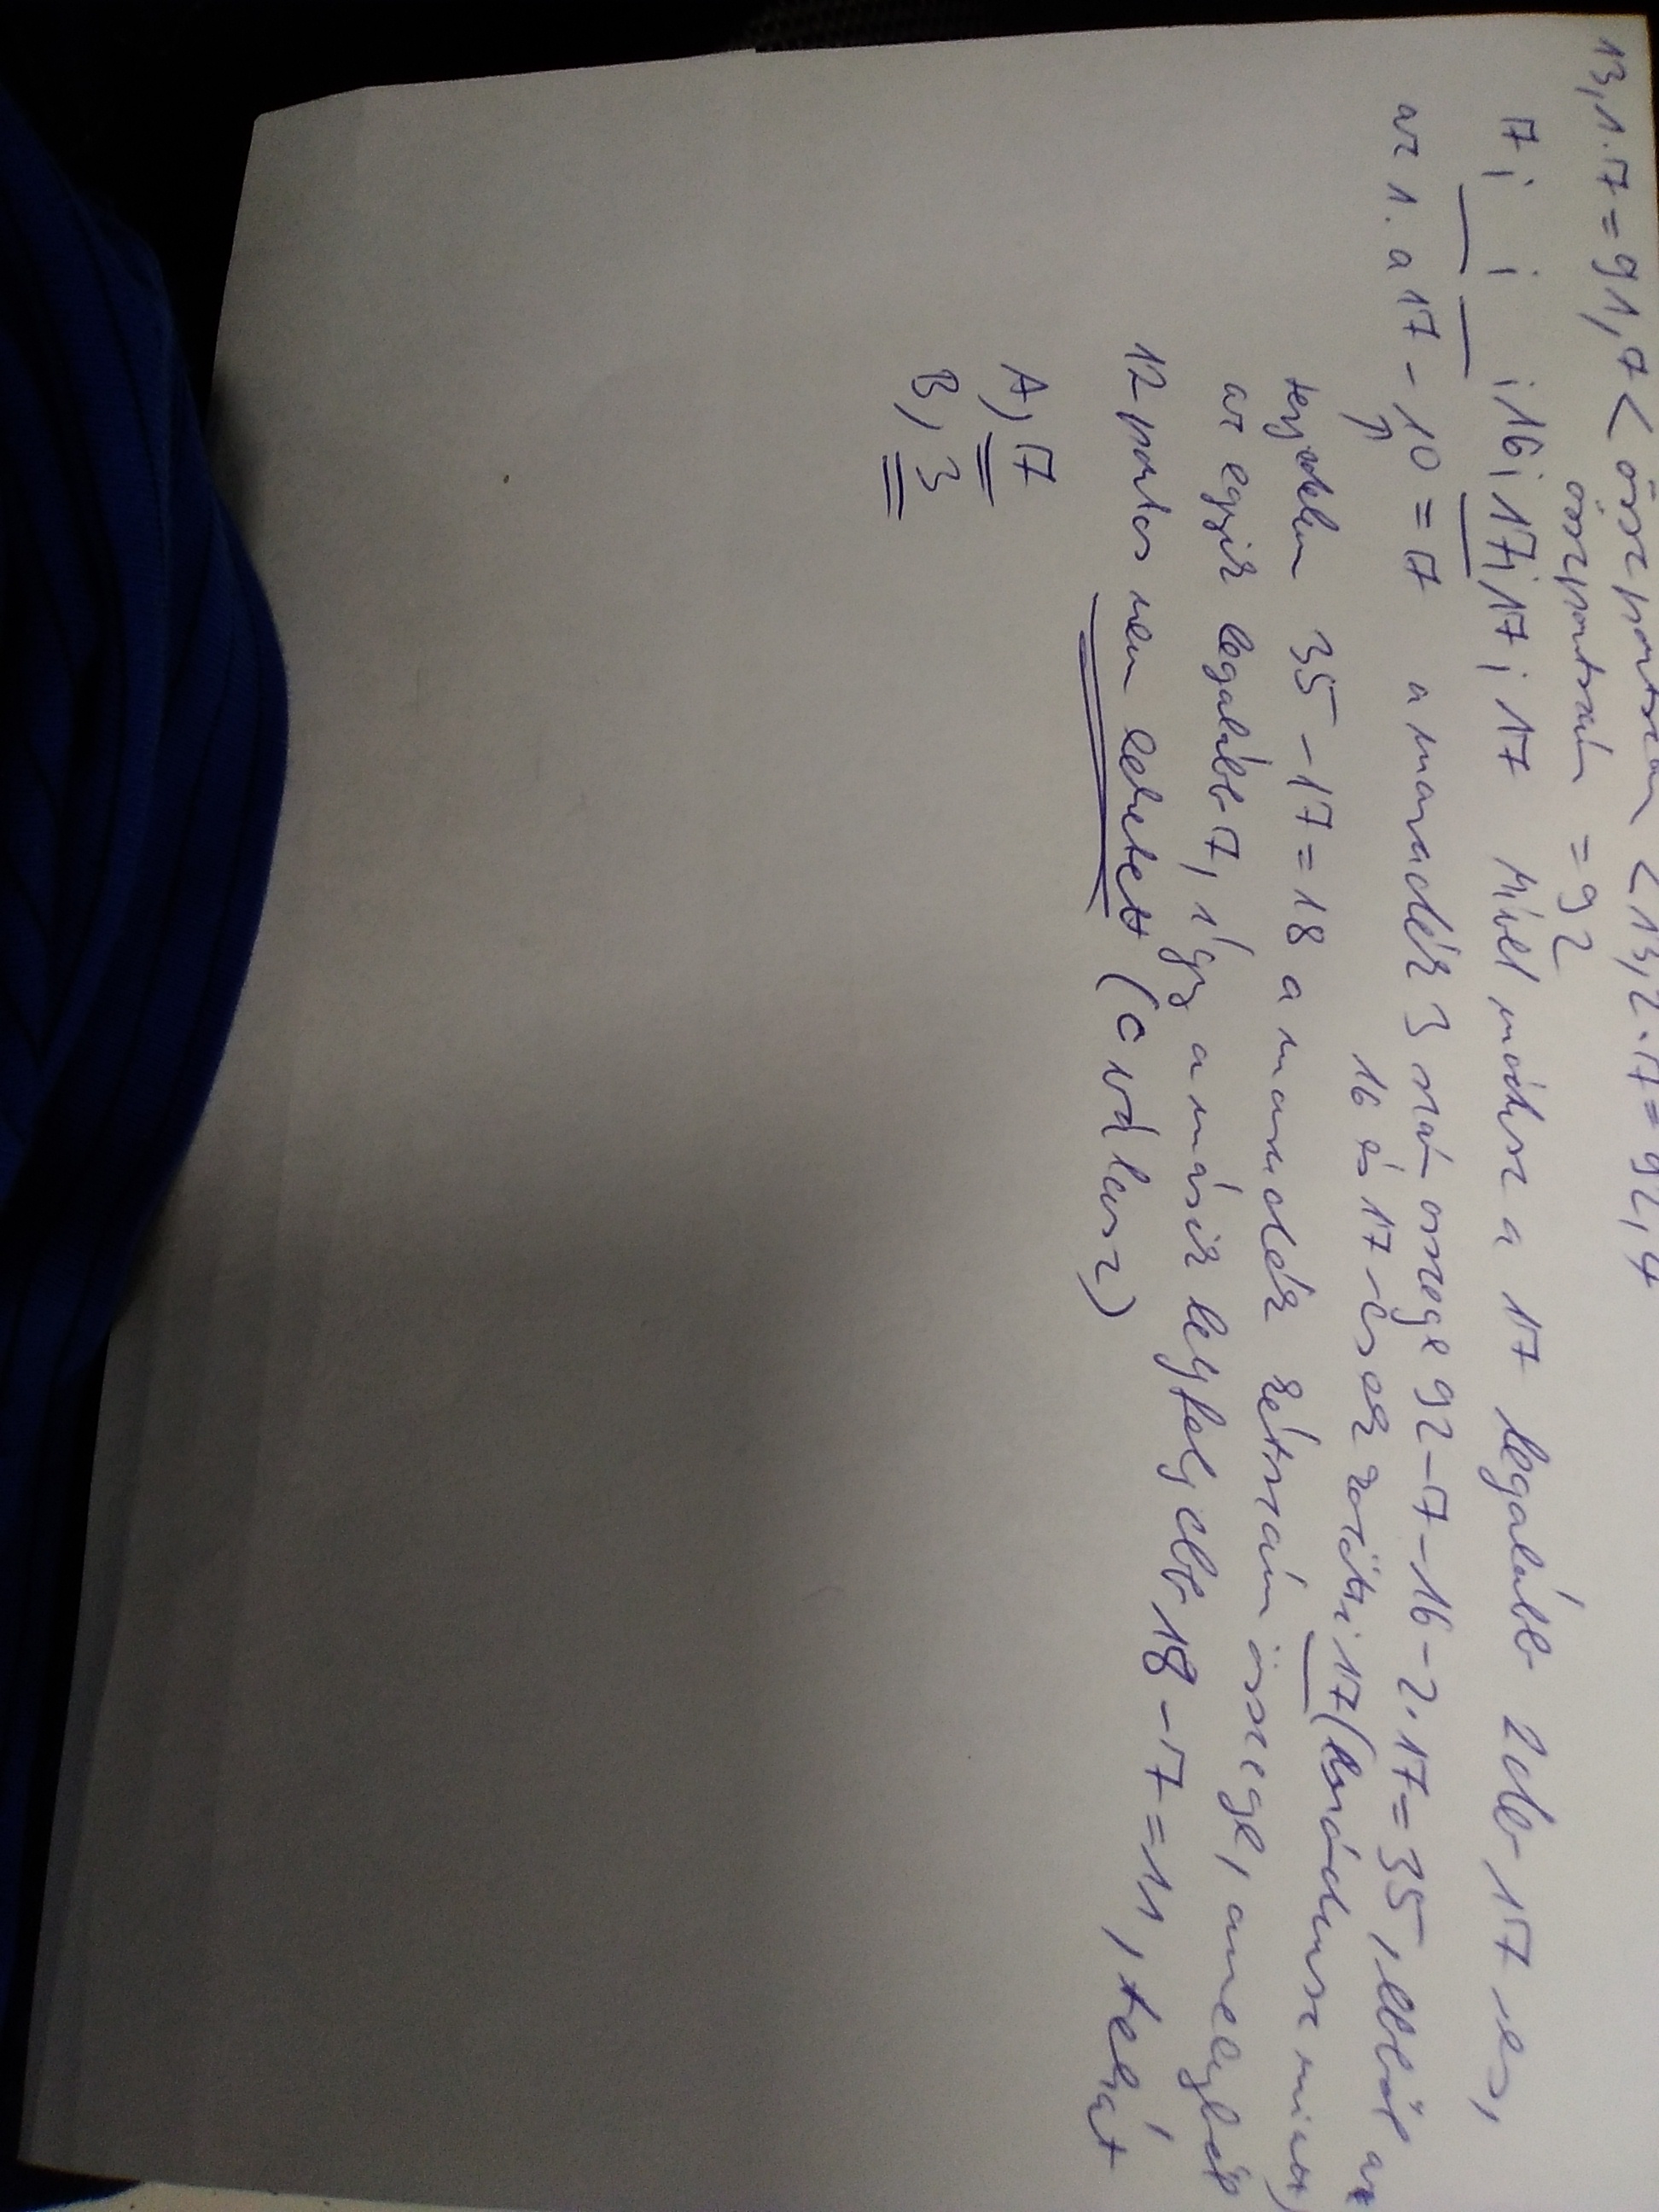 13,1·7=91,7 < összpontszám < 13,2·7=92,4
összpontszám = 92
7; __; __; 16; 17; 17; 17 Mivel módusz a 17 legalább 2 db 17-es,
az 1. a 17-10=7 a maradék 3 szám összege 92-7-16-2·17=35, ebből az
16 és 17 -es az közötti 17 (módusz miatt)
egyik 35-17=18 a maradék két szám összege, amelyből
az egyik legalább 7, így a másik legfeljebb 18-7=11, tehát
12 pontos nem lehetett (C válasz)
A, 7
B, 3